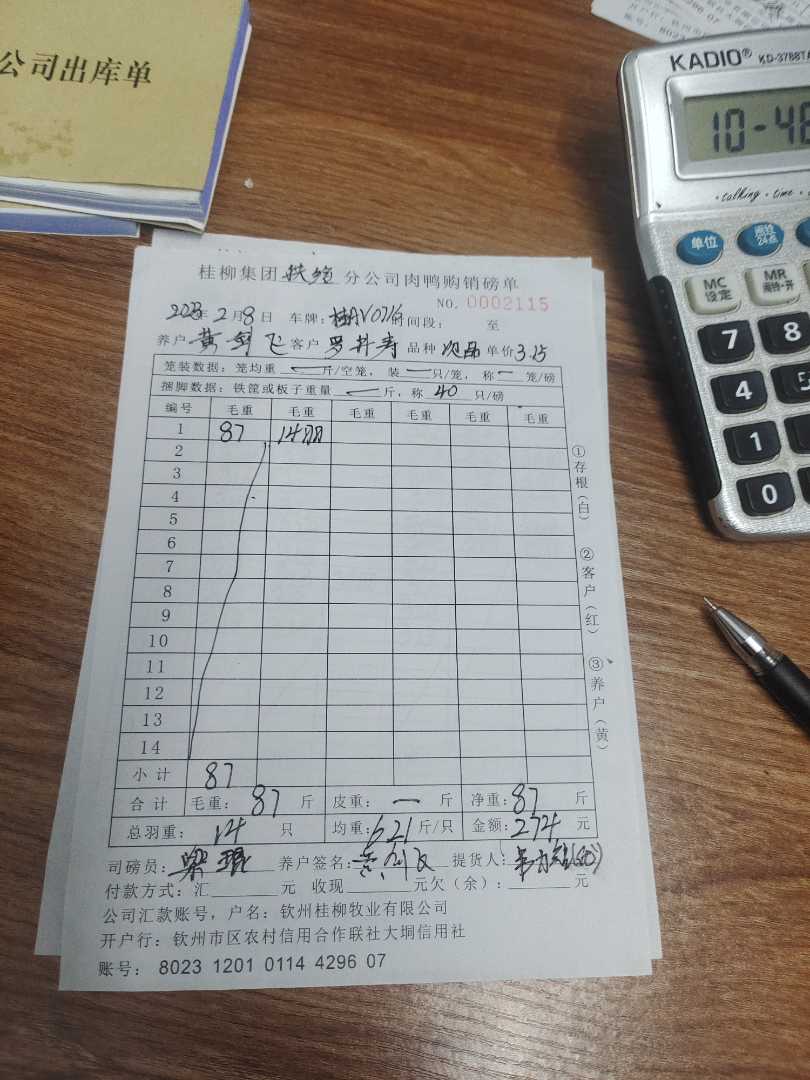 公司出库单
KADIO® KD-3788TA
10-48
talking · time
单位
闹铃 24点
MC 设定
MR 闹铃·开
7 8
4 5
1
0
桂柳集团 分公司肉鸭购销磅单
NO. 0002115
2023年2月8日 车牌:桂AV0716时间段: 至
养户 黄剑飞 客户 罗井寿 品种 次品 单价 3.15
笼装数据:笼均重 一 斤/空笼,装 一 只/笼,称 一 笼/磅
捆脚数据:铁筐或板子重量 一 斤,称 40 只/磅
编号 毛重 毛重 毛重 毛重 毛重 毛重
1 87 14羽
2
3
4
5
6
7
8
9
10
11
12
13
14
小计 87
合计 毛重: 87 斤 皮重: 一 斤 净重: 87 斤
总羽重: 14 只 均重: 621 斤/只 金额: 274 元
司磅员: 梁琨 养户签名: 提货人:
付款方式:汇 元 收现 元欠(余): 元
公司汇款账号,户名:钦州桂柳牧业有限公司
开户行:钦州市区农村信用合作联社大垌信用社
账号: 8023 1201 0114 4296 07
①存根(白)
②客户(红)
③养户(黄)